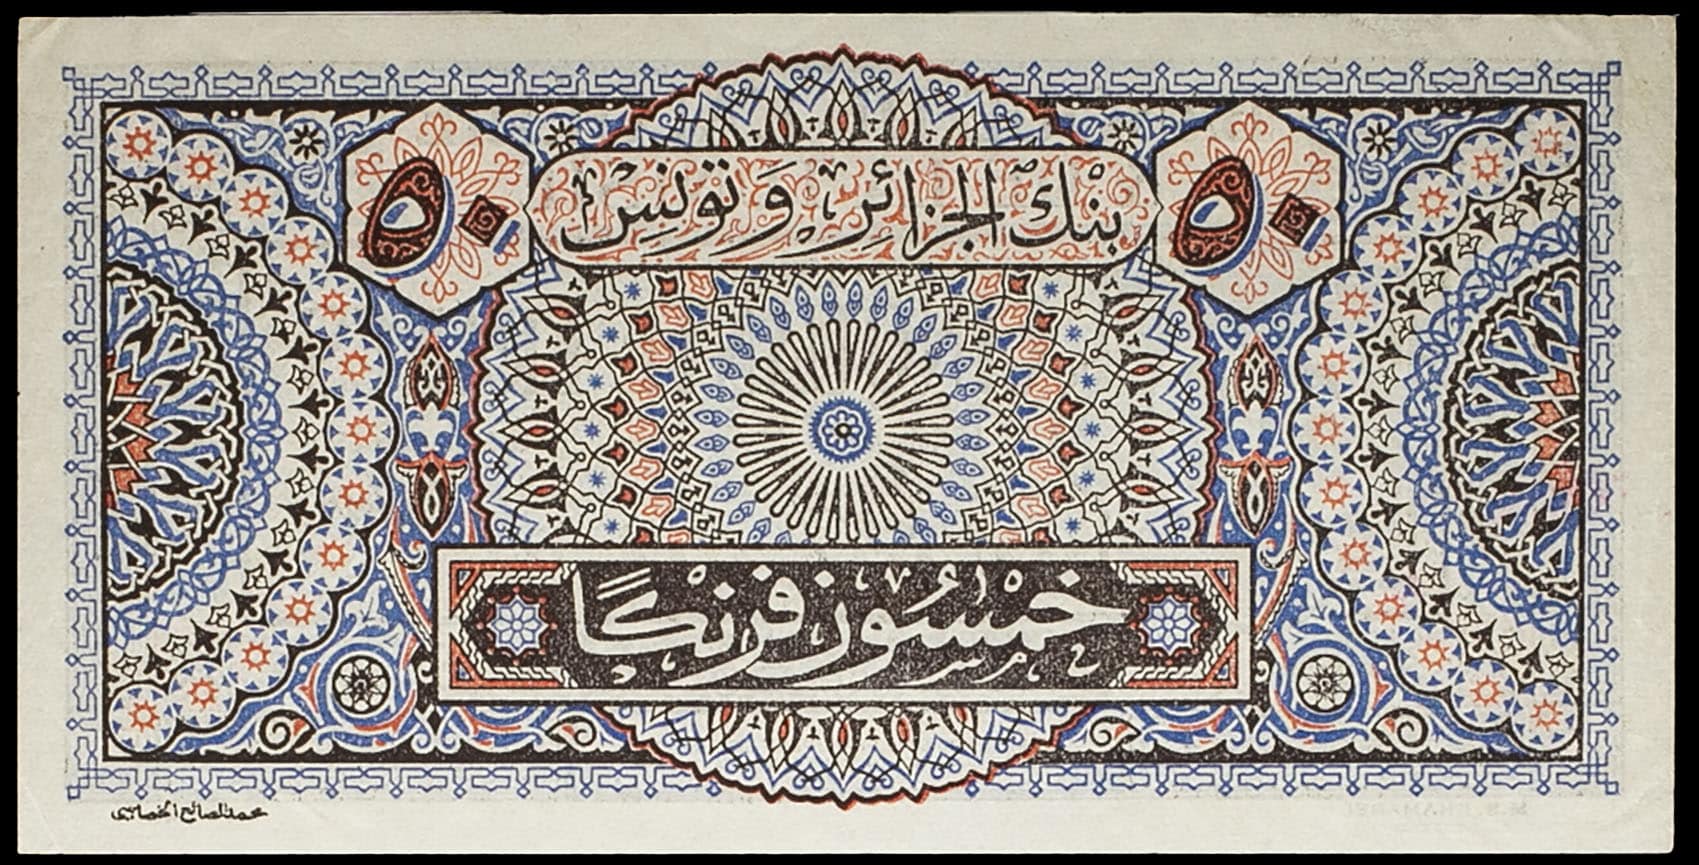 ٥٠
بنك الجزائر وتونس
٥٠
خمسون فرنكًا
محمد الصالح الخماسي